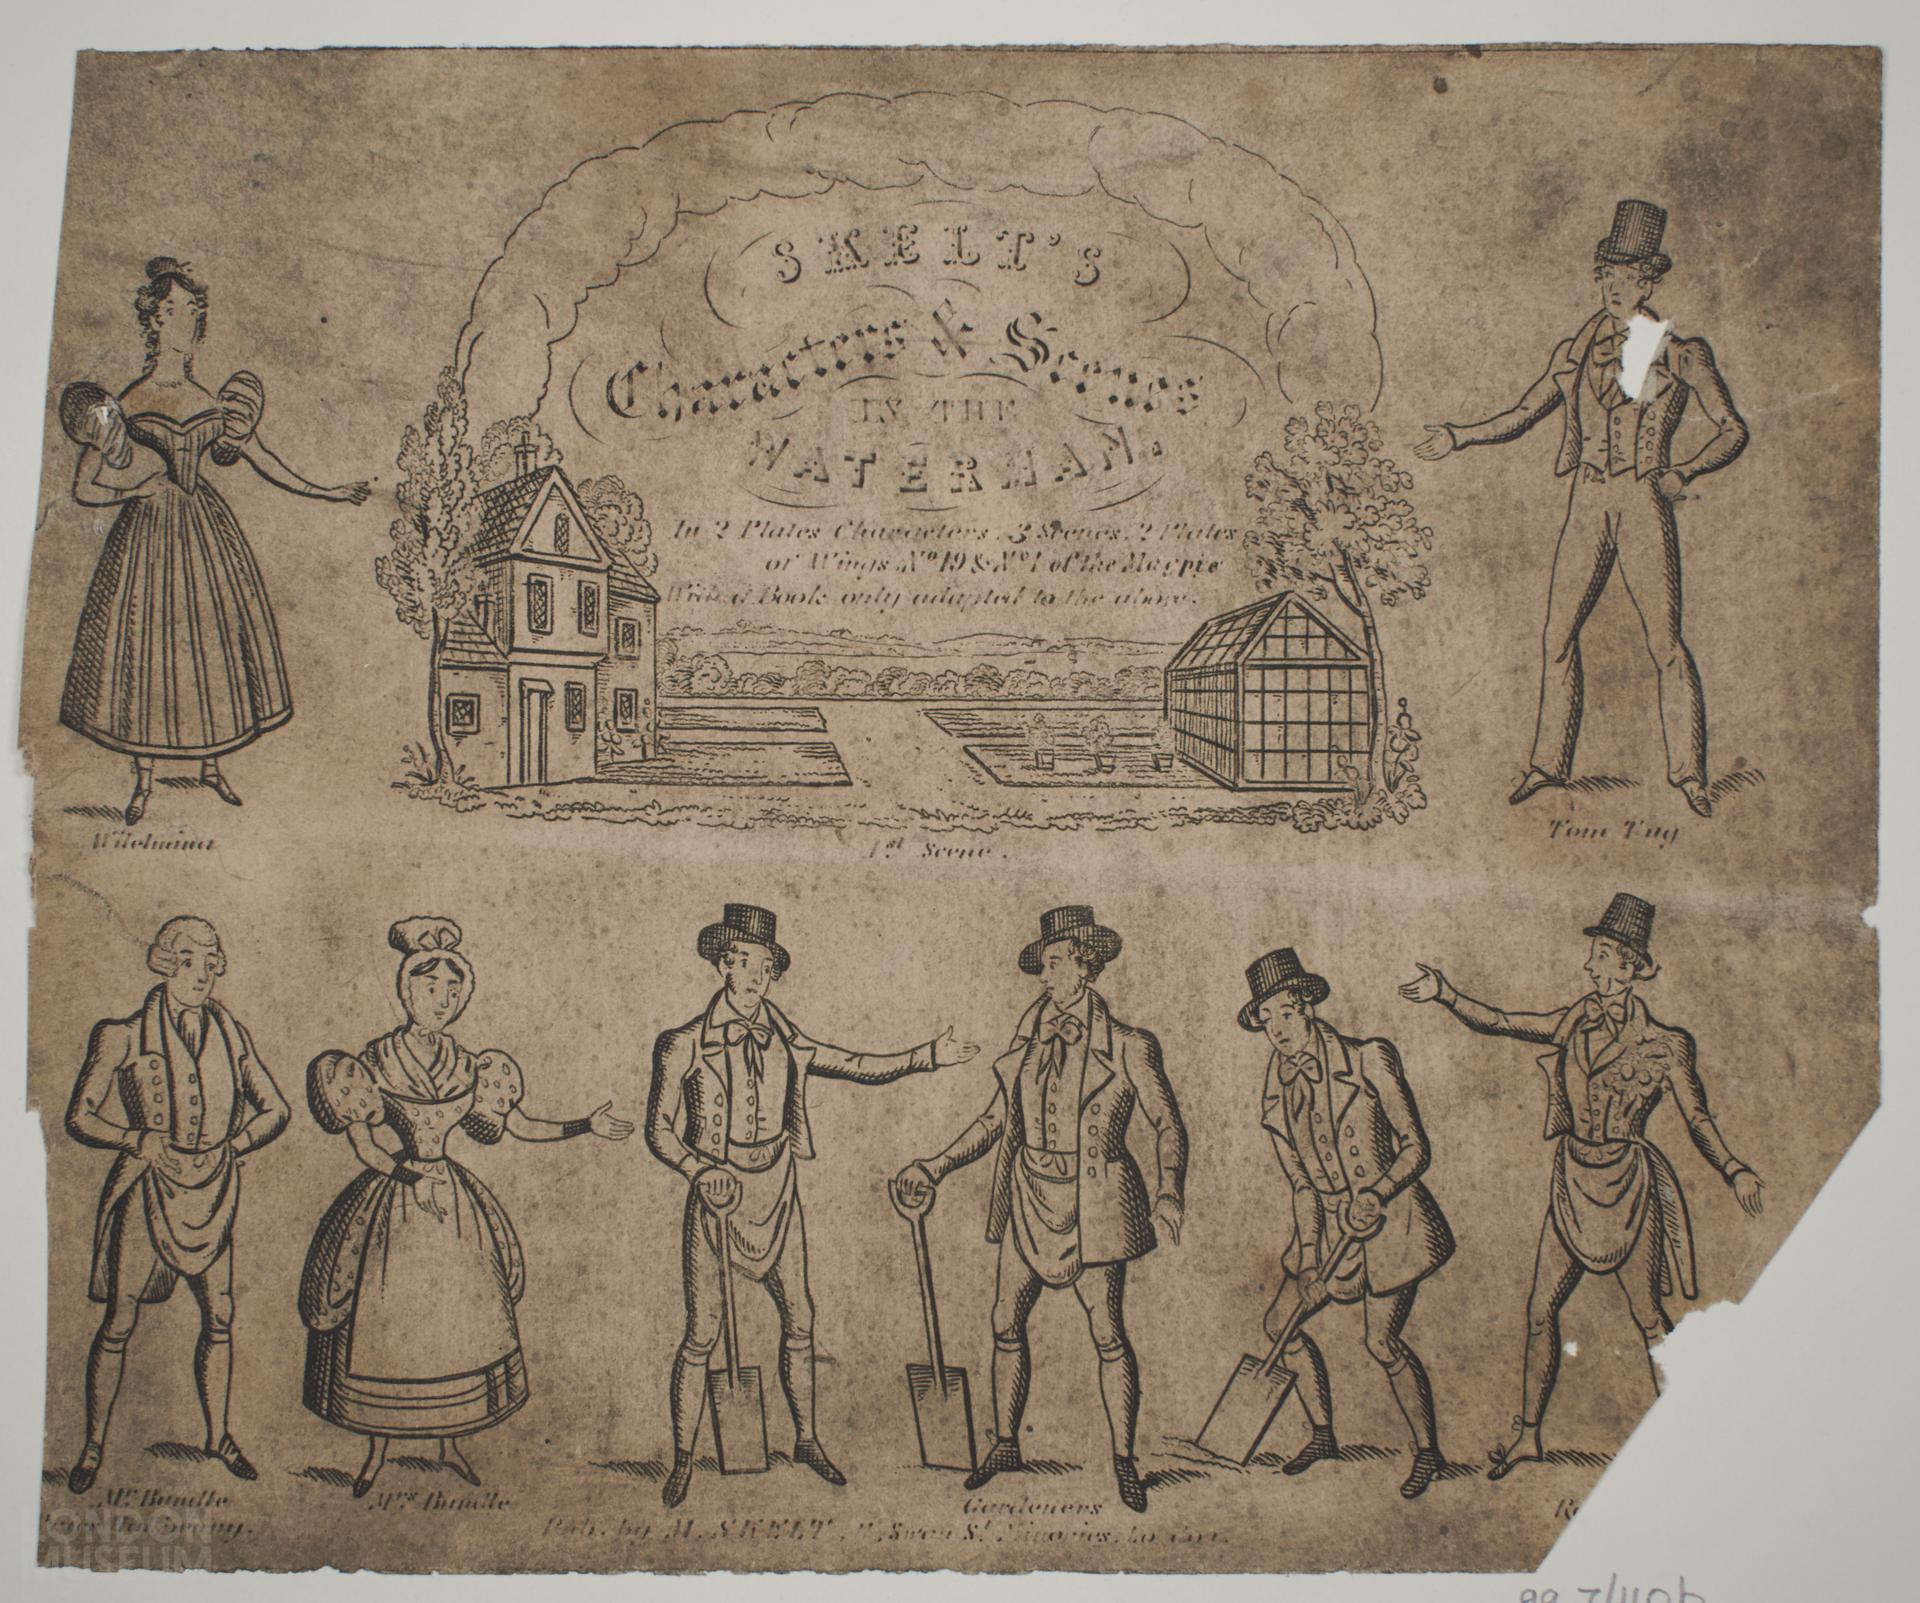 SKELT'S
Characters & Scenes
IN THE
WATERMAN,
In 2 Plates Characters, 3 Scenes, 2 Plates
of Wings No 19 & No 1 of the Magpie
With a Book only adapted to the above.
Wilelmina
1st Scene.
Tom Tug
Mr. Bundle
Mrs Bundle
Gardeners
Ro
Price One Penny.
Pub. by M. SKELT, Swan St Minories, London.
LONDON
MUSEUM
99.7/110b